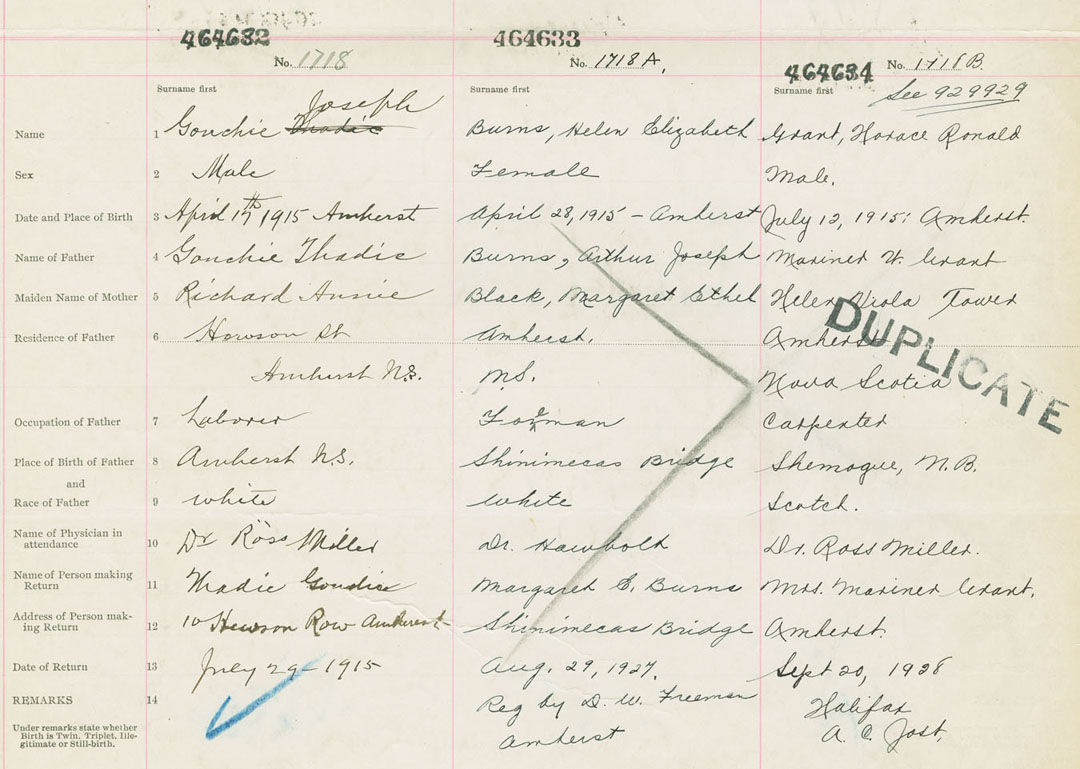 464632 464633 464634
No. 1718 No. 1718 A. No. 1718 B.
See 929929
Surname first Surname first Surname first
Joseph
Name 1 Gouchie Thadie Burns, Helen Elizabeth Grant, Horace Ronald
Sex 2 Male Female Male.
Date and Place of Birth 3 April 17th 1915 Amherst April 28, 1915 - Amherst July 12, 1915: Amherst.
Name of Father 4 Gouchie Thadie Burns, Arthur Joseph Mariner W. Grant
Maiden Name of Mother 5 Richard Annie Black, Margaret Ethel Helen Viola Tower
Residence of Father 6 Howson St Amherst. Amherst
Amherst N.S. N.S. Nova Scotia
DUPLICATE
Occupation of Father 7 Laborer Foreman Carpenter
Place of Birth of Father 8 Amherst N.S. Shinimecas Bridge Shemogue, N.B.
and
Race of Father 9 White White Scotch.
Name of Physician in
attendance 10 Dr Ross Miller Dr. Hawbolt Dr. Ross Miller.
Name of Person making
Return 11 Thadie Goudie Margaret E. Burns Mrs. Mariner Grant.
Address of Person mak-
ing Return 12 10 Hewson Row Amherst Shinimecas Bridge Amherst.
Date of Return 13 July 29 - 1915 Aug. 29, 1927. Sept 20, 1928
REMARKS 14 Reg by D. W. Freeman Halifax
Under remarks state whether
Birth is Twin, Triplet, Ille-
gitimate or Still-birth. Amherst A. C. Jost.